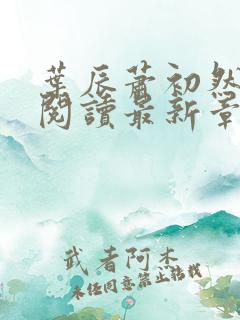 葉辰蕭初然
閱讀最新章
武者阿木
未經同意禁止轉載